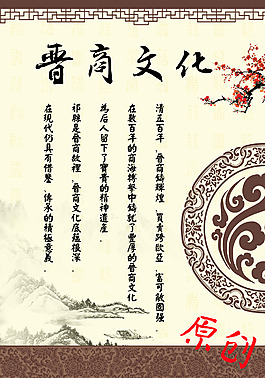 晋商文化
清五百年，晋商铸辉煌，贸贵跨欧亚，富可敵国强。
在数百年的商海搏擊中铸就了豐厚的晋商文化
為后人留下了寶貴的精神遺産。
祁縣是晋商故裡，晋商文化底蕴很深。
在現代仍具有借鑒、傳承的積極意義。
原创